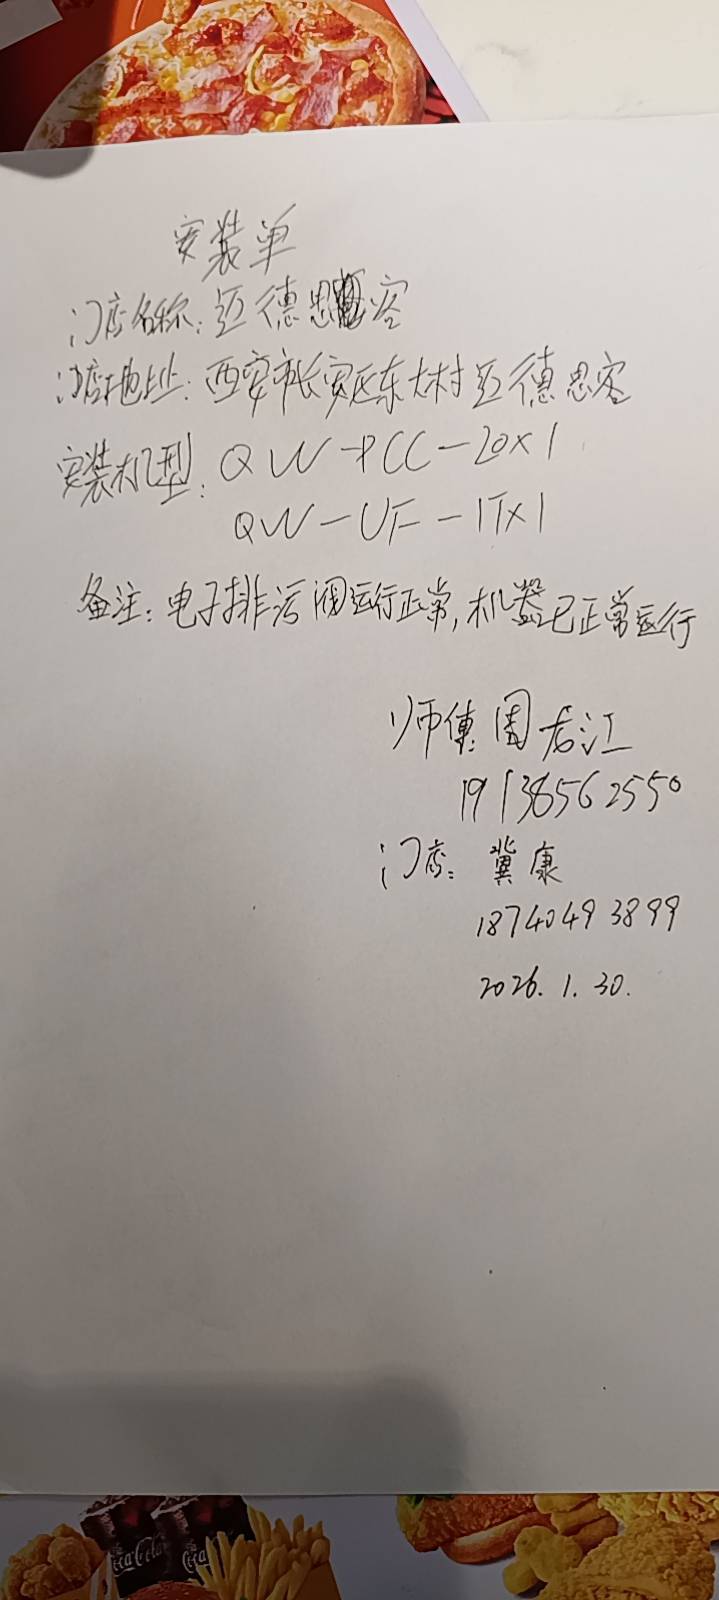 安装单
门店名称：迈德思客
门店地址：西安市长安区东大村迈德思客
安装机型：QW-PCC-20×1
QW-UF-1T×1
备注：电子排污阀运行正常，机器已正常运行
师傅：周君江
19138562550
门店：冀康
18740493899
2026.1.30.
Coca-Cola
Coca